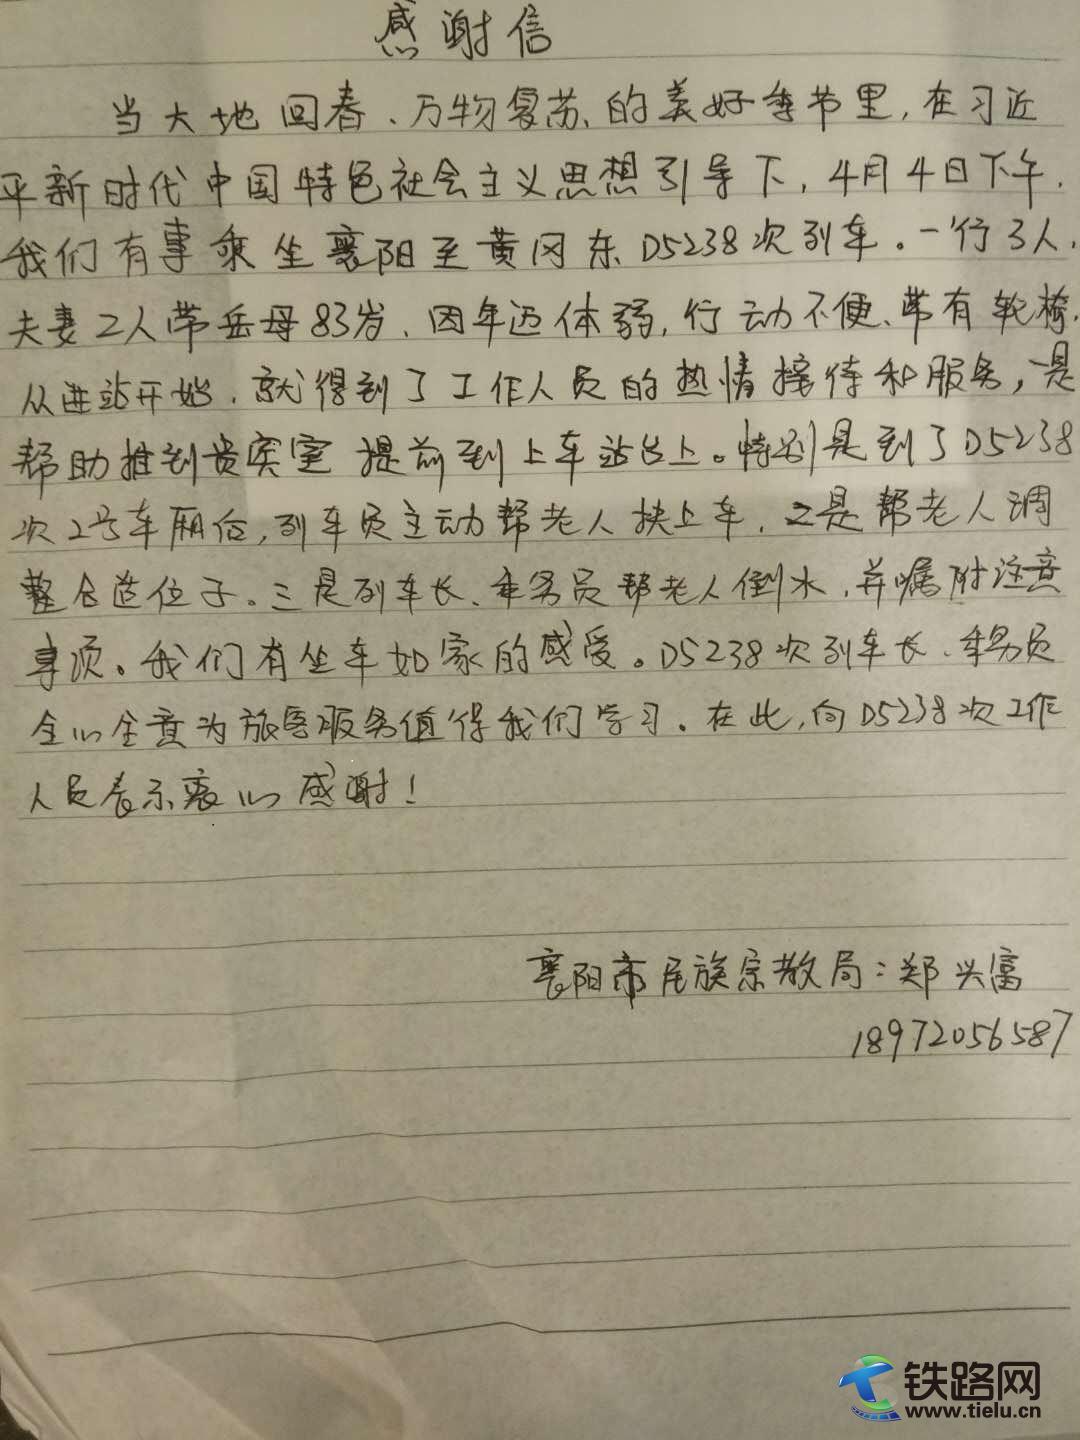 感谢信
当大地回春、万物复苏的美好季节里,在习近
平新时代中国特色社会主义思想引导下,4月4日下午,
我们有事乘坐襄阳至黄冈东D5238次列车。一行3人,
夫妻2人带岳母83岁,因年迈体弱,行动不便、带有轮椅,
从进站开始,就得到了工作人员的热情接待和服务,一是
帮助推到贵宾室提前到上车站台上。特别是到了D5238
次2号车厢后,列车员主动帮老人扶上车,二是帮老人调
整合适位子。三是列车长、乘务员帮老人倒水,并嘱咐注意
事项。我们有坐车如家的感受。D5238次列车长、乘务员
全心全意为旅客服务值得我们学习。在此,向D5238次工作
人员表示衷心感谢!
襄阳市民族宗教局:郑兴富
18972056587
铁路网
www.tielu.cn